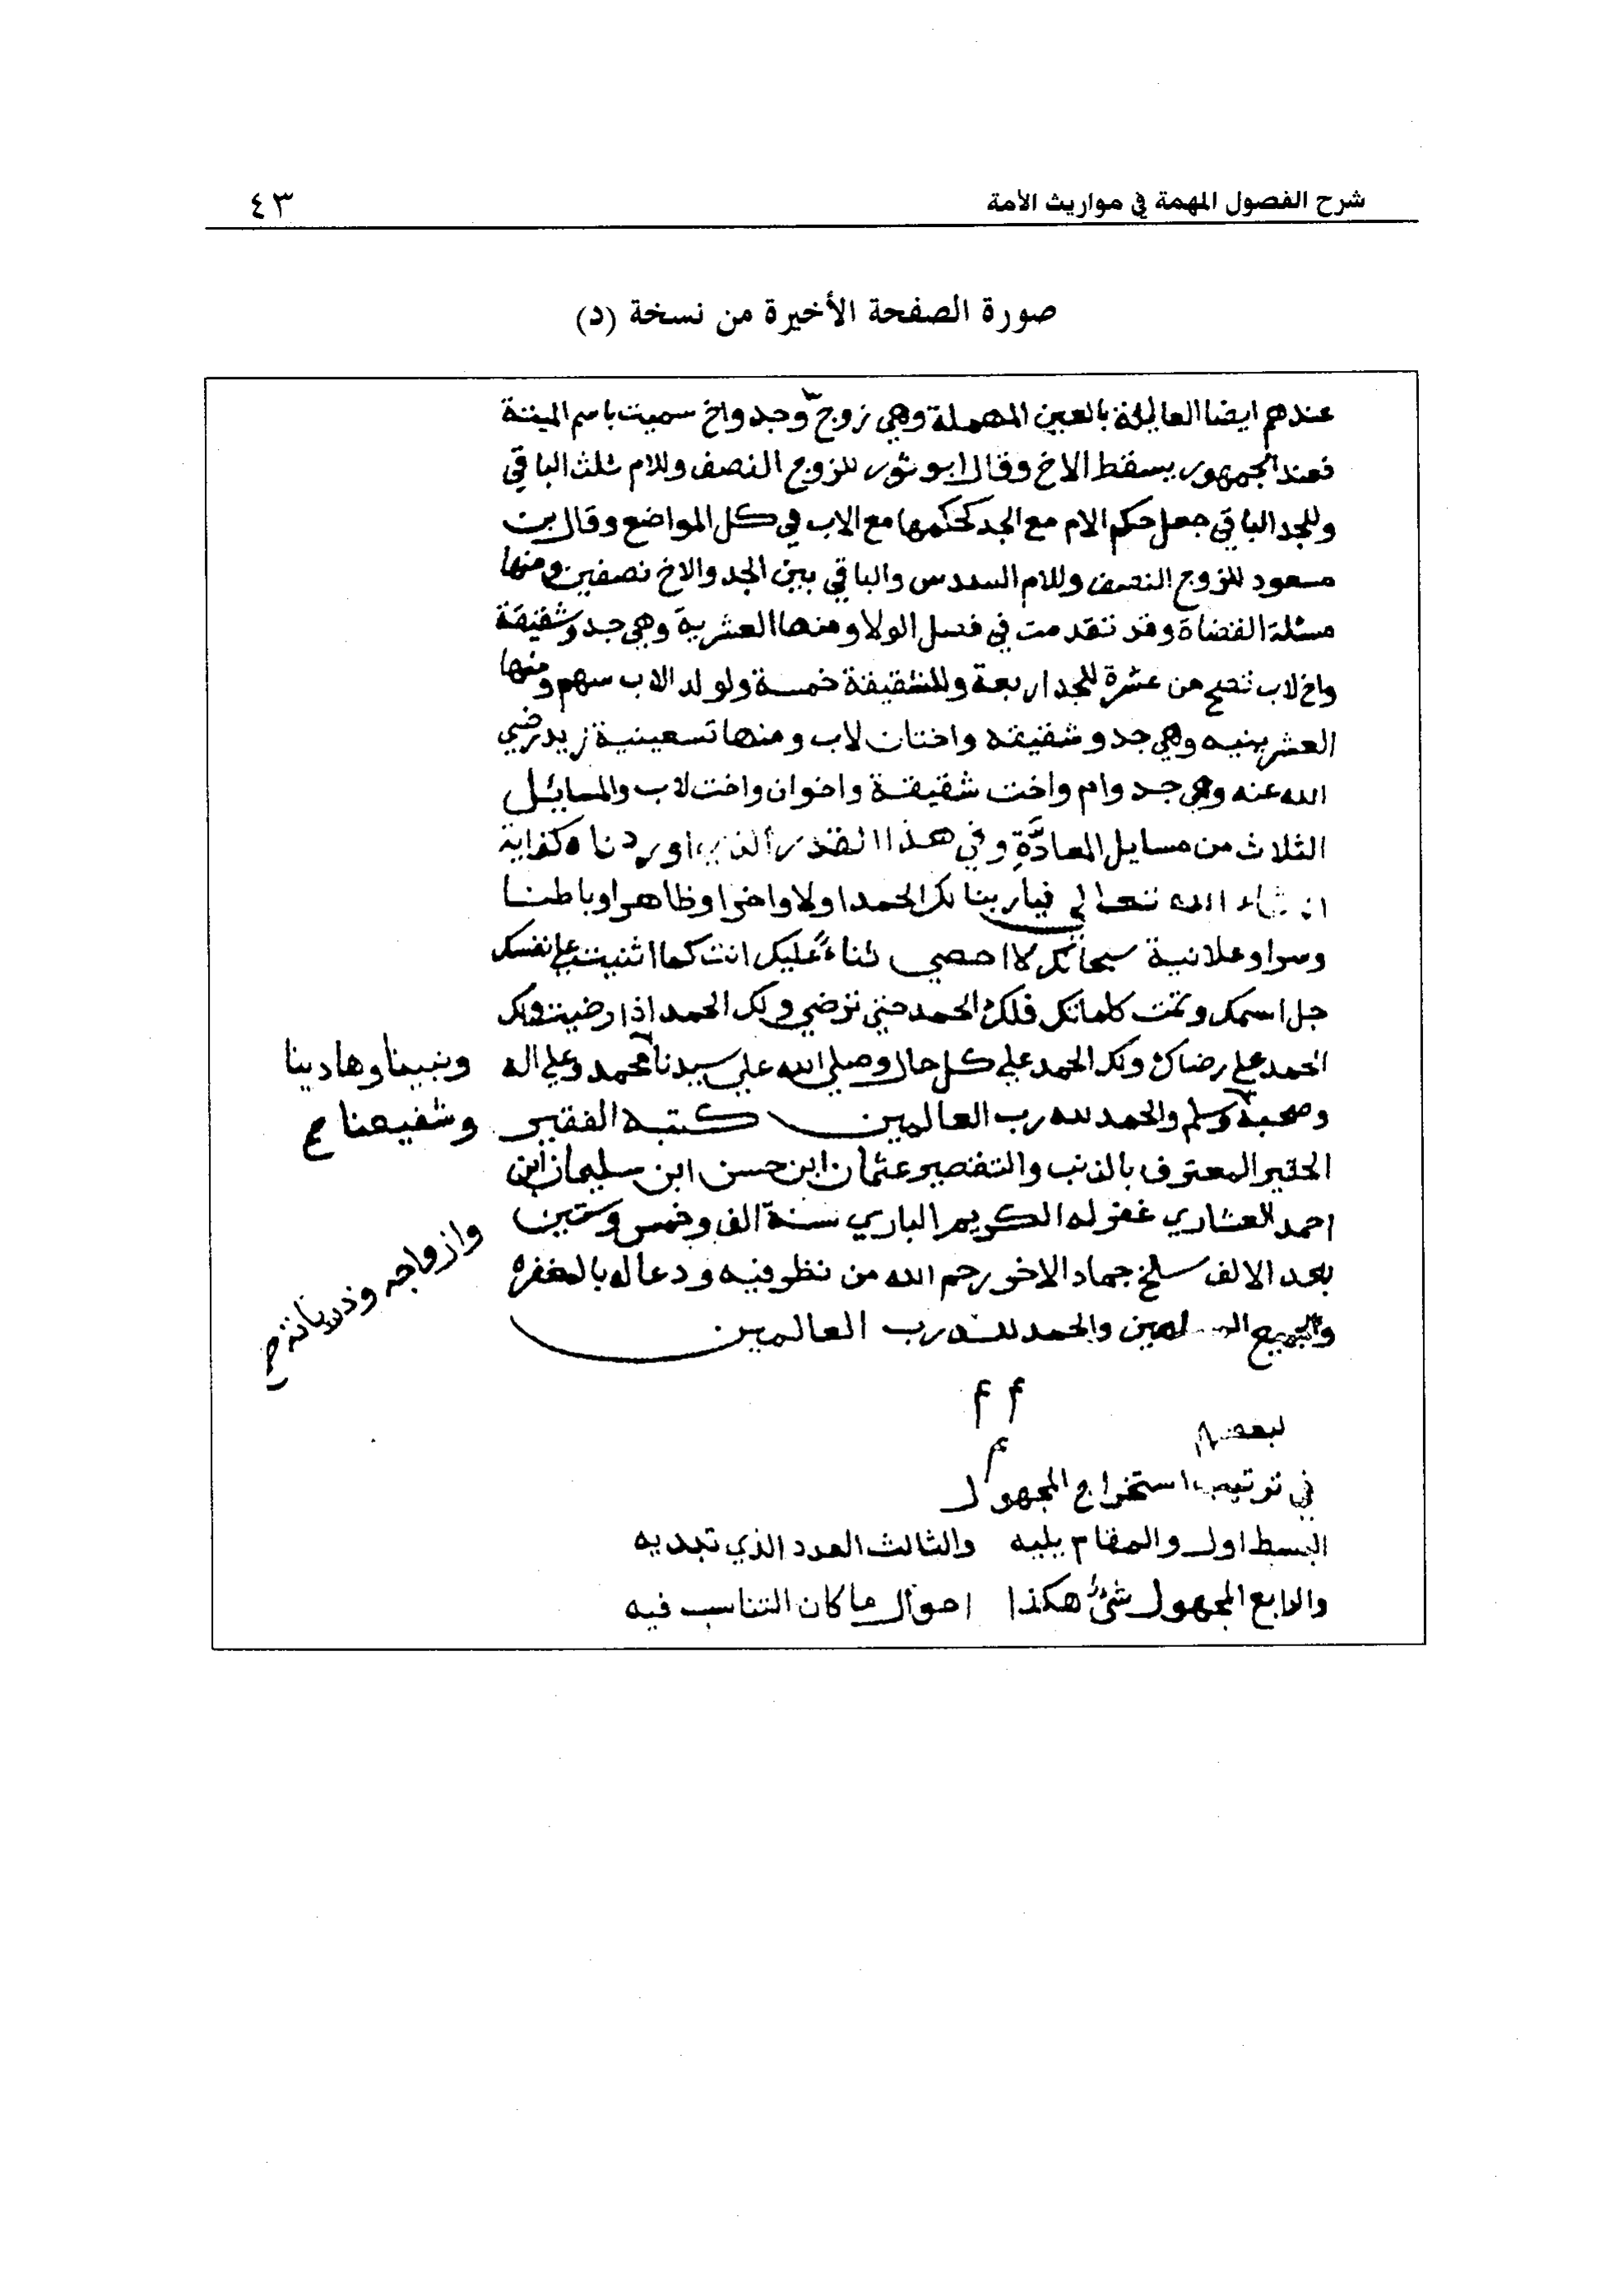 شرح الفصول المهمة في مواريث الأمة
٤٣
صورة الصفحة الأخيرة من نسخة (د)
عندهم ايضا العالية بالعين المهملة وهي زوج وجد واخ سميت باسم الميتة
فعند الجمهور يسقط الاخ وقال ابو ثور للزوج النصف وللام ثلث الباقي
وللجد الباقي جعل حكم الام مع الجد كحكمها مع الاب في كل المواضع وقال بن
مسعود للزوج النصف وللام السدس والباقي بين الجد والاخ نصفين ومنها
مسئلة القضاة وقد تقدمت في فصل الولا ومنها العشرية وهي جد وشقيقة
واخ لاب تصح من عشرة للجد اربعة وللشقيقة خمسة ولولد الاب سهم ومنها
العشرينيه وهي جد وشقيقه واختان لاب ومنها تسعينية زيد رضي
الله عنه وهي جد وام واخت شقيقة واخوان واخت لاب والمسايل
الثلاث من مسايل المعادَّةِ وفي هذا القدر الذي اوردناه كفاية
ان شاء الله تعالي فيا ربنا لك الحمد اولا واخرا وظاهرا وباطنا
وسرا وعلانية سبحانك لا احصي ثناءً عليك انت كما اثنيت علي نفسك
جل اسمك وتمت كلماتك فلك الحمد حتي ترضي ولك الحمد اذا رضيت ولك
الحمد علي رضاك ولك الحمد علي كل حال وصلي الله علي سيدنا محمد وعلي اله
ونبينا وهادينا
وصحبه وسلم والحمد لله رب العالمين كتبه الفقير
وشفيعنا
الحقير المعترف بالذنب والتقصير عثمان ابن حسن ابن سليمان ابن
احمد العشاري غفر له الكريم الباري سنة الف وخمس وستين
وازواجه وذرياته صح
بعد الالف سلخ جماد الاخر رحم الله من نظر فيه ودعا له بالمغفره
ولجميع المسلمين والحمد لله رب العالمين
م م
م
لبعضهم
في ترتيب استخراج المجهول
البسط اول والمقام يليه والثالث العدد الذي تبديه
والرابع المجهول شئ هكذا احوال ما كان التناسب فيه